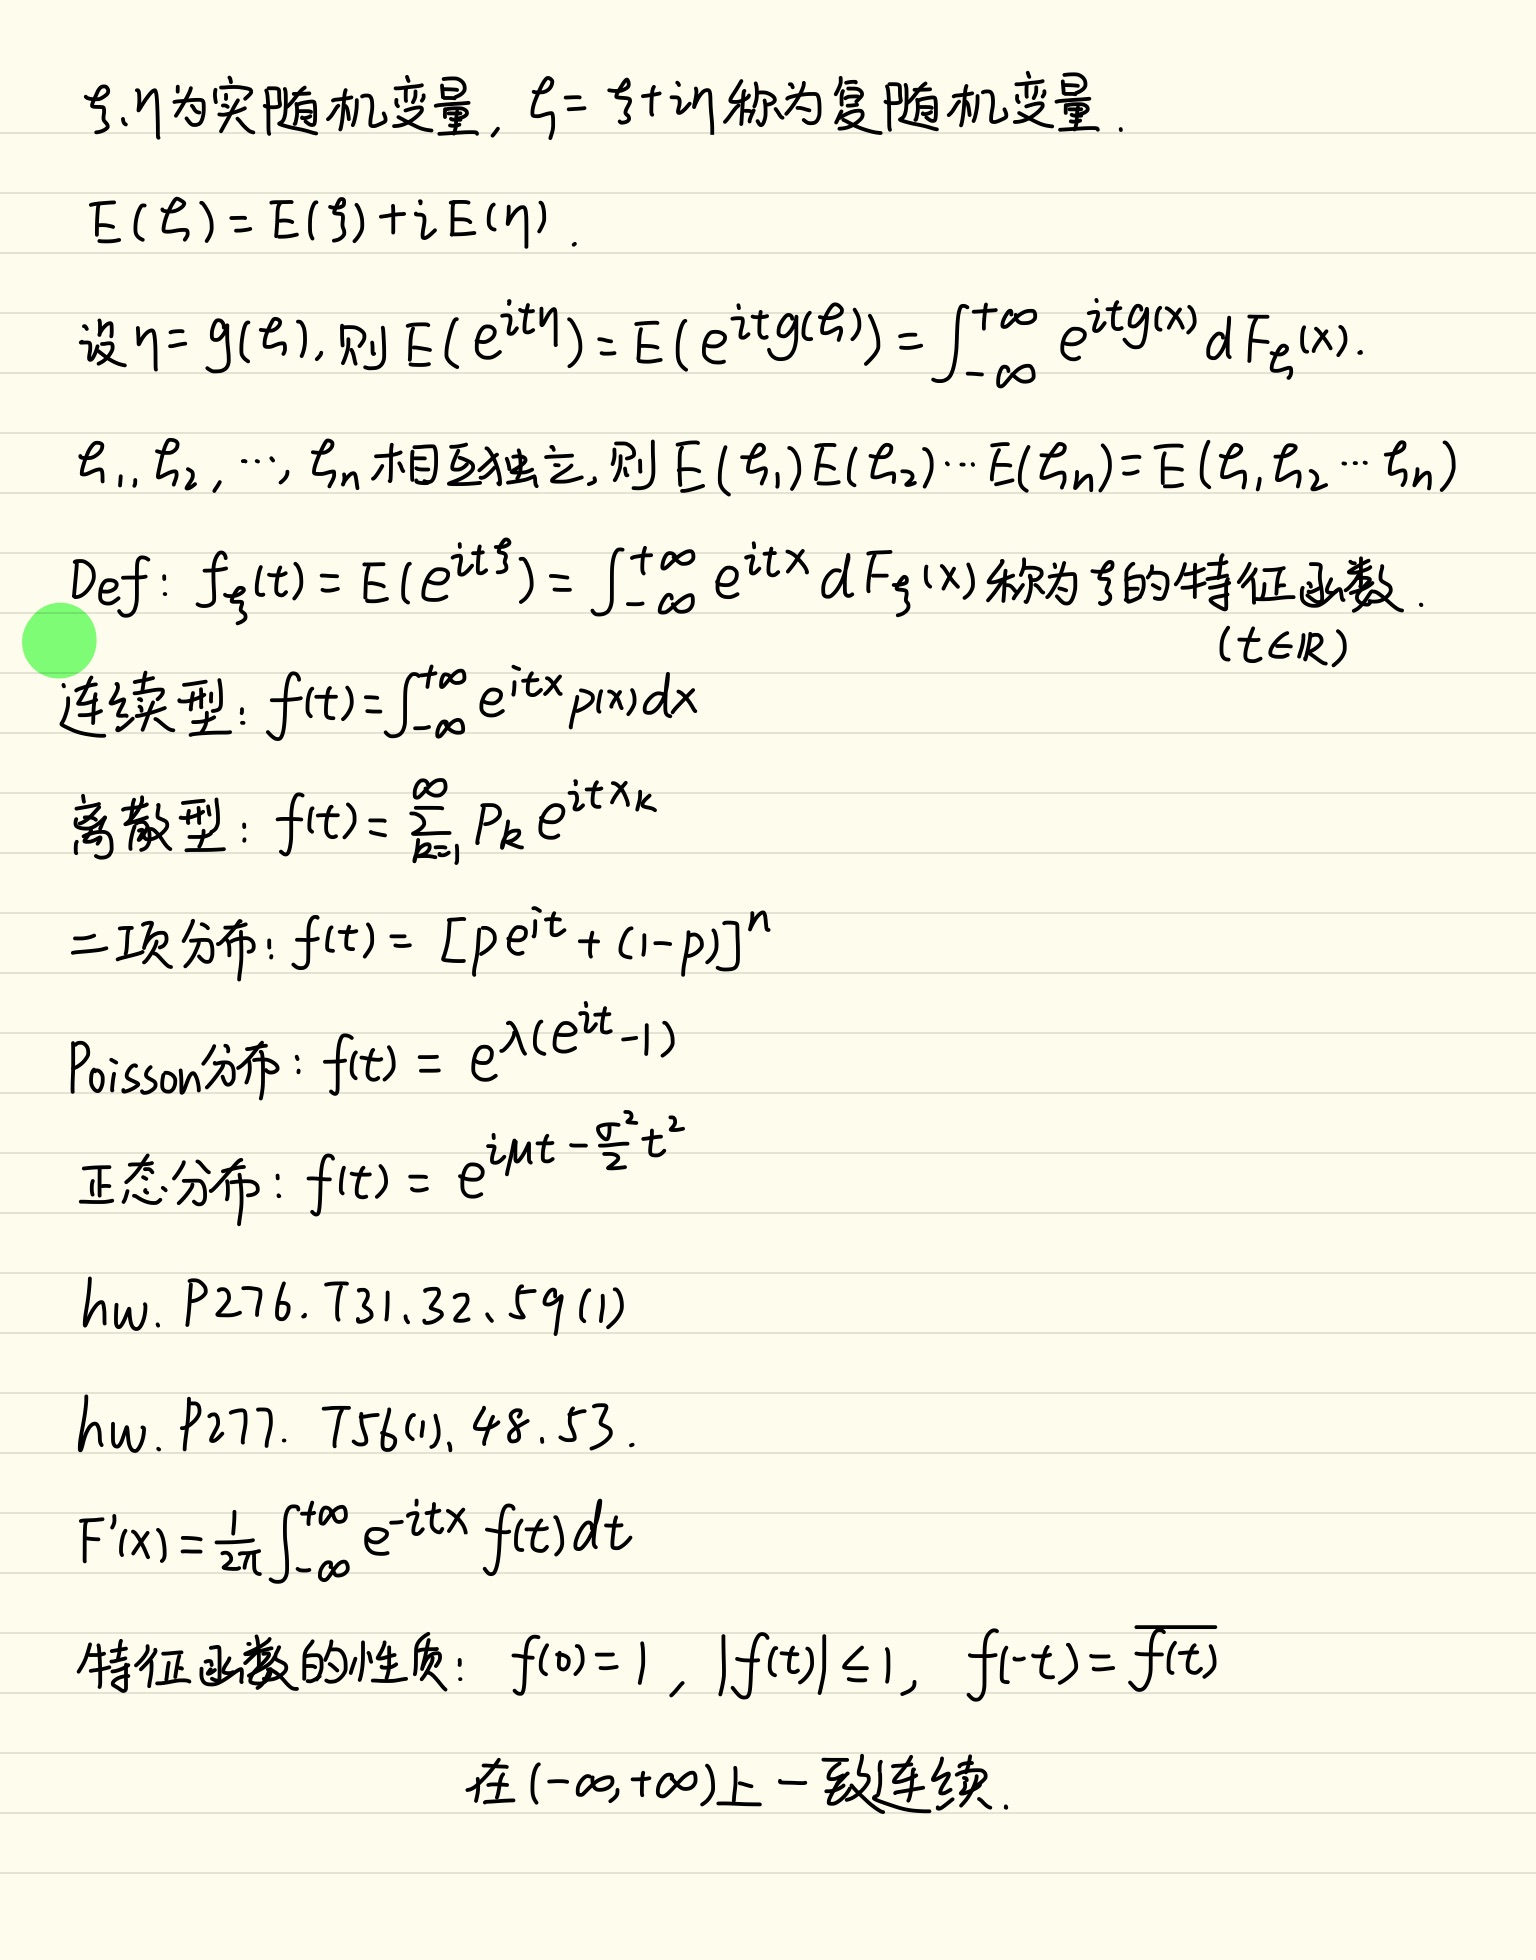 ξ、η为实随机变量, ζ = ξ + iη 称为复随机变量.
E(ζ) = E(ξ) + iE(η).
设 η = g(ζ), 则 E(e^{itη}) = E(e^{itg(ζ)}) = ∫_{-∞}^{+∞} e^{itg(x)} dF_ζ(x).
ζ₁, ζ₂, ⋯, ζₙ 相互独立, 则 E(ζ₁)E(ζ₂)⋯E(ζₙ) = E(ζ₁ζ₂⋯ζₙ)
Def: f_ξ(t) = E(e^{itξ}) = ∫_{-∞}^{+∞} e^{itx} dF_ξ(x) 称为ξ的特征函数.
(t∈ℝ)
连续型: f(t) = ∫_{-∞}^{+∞} e^{itx} p(x)dx
离散型: f(t) = ∑_{k=1}^{∞} P_k e^{itx_k}
二项分布: f(t) = [pe^{it} + (1-p)]^n
Poisson分布: f(t) = e^{λ(e^{it}-1)}
正态分布: f(t) = e^{iμt - \frac{σ²}{2}t²}
hw. P276. T31、32、59(1)
hw. P277. T56(1)、48.53.
F'(x) = \frac{1}{2π} ∫_{-∞}^{+∞} e^{-itx} f(t)dt
特征函数的性质: f(0) = 1, |f(t)| ≤ 1, f(-t) = \overline{f(t)}
在(-∞,+∞)上一致连续.